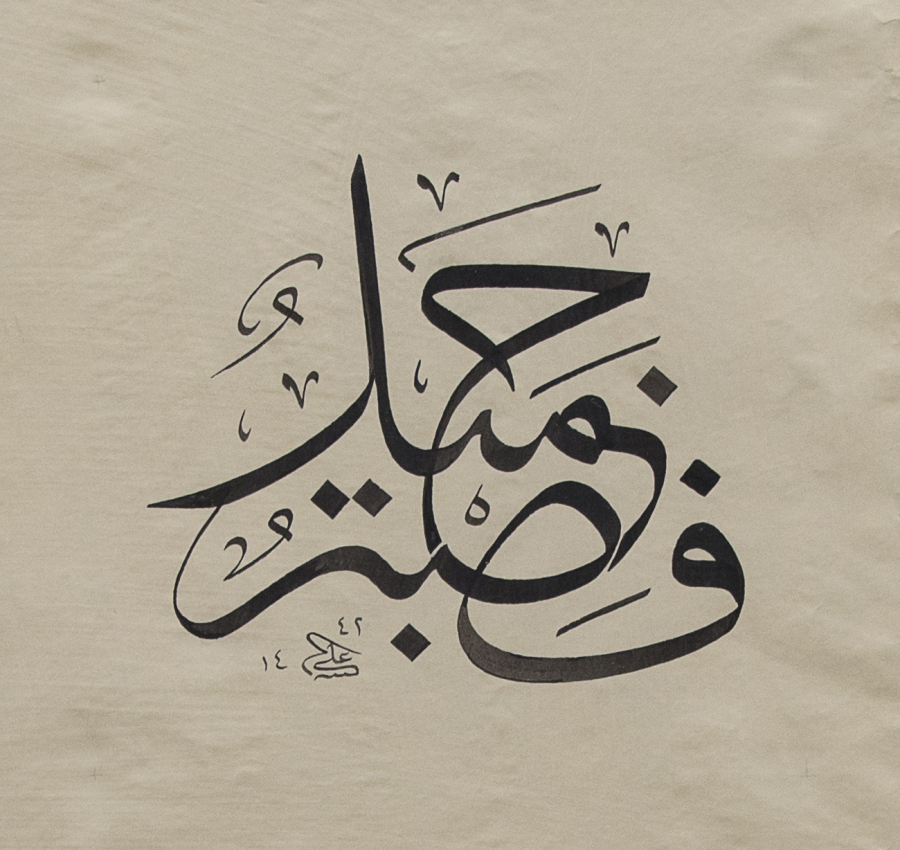 فَصَبْرٌ جَمِيلٌ
علي ١٤٤٢